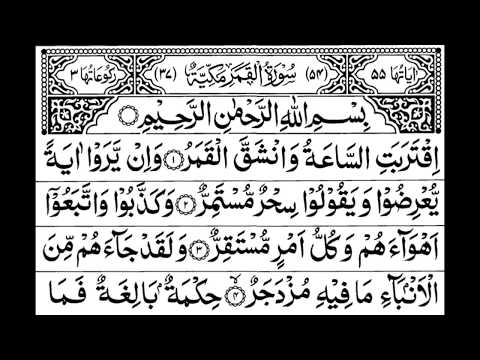 اٰیَاتُهَا ٥٥ (٥٤) سُوْرَةُ الْقَمَرِ مَكِّيَّةٌ (٣٧) رُكُوْعَاتُهَا ٣
بِسْمِ اللّٰهِ الرَّحْمٰنِ الرَّحِيْمِ
اِقْتَرَبَتِ السَّاعَةُ وَانْشَقَّ الْقَمَرُ ۝١ وَاِنْ يَّرَوْا اٰيَةً
يُّعْرِضُوْا وَيَقُوْلُوْا سِحْرٌ مُّسْتَمِرٌّ ۝٢ وَكَذَّبُوْا وَاتَّبَعُوْۤا
اَهْوَآءَهُمْ وَكُلُّ اَمْرٍ مُّسْتَقِرٌّ ۝٣ وَلَقَدْ جَآءَهُمْ مِّنَ
الْاَنْۢبَآءِ مَا فِيْهِ مُزْدَجَرٌ ۝٤ حِكْمَةٌۢ بَالِغَةٌ فَمَا